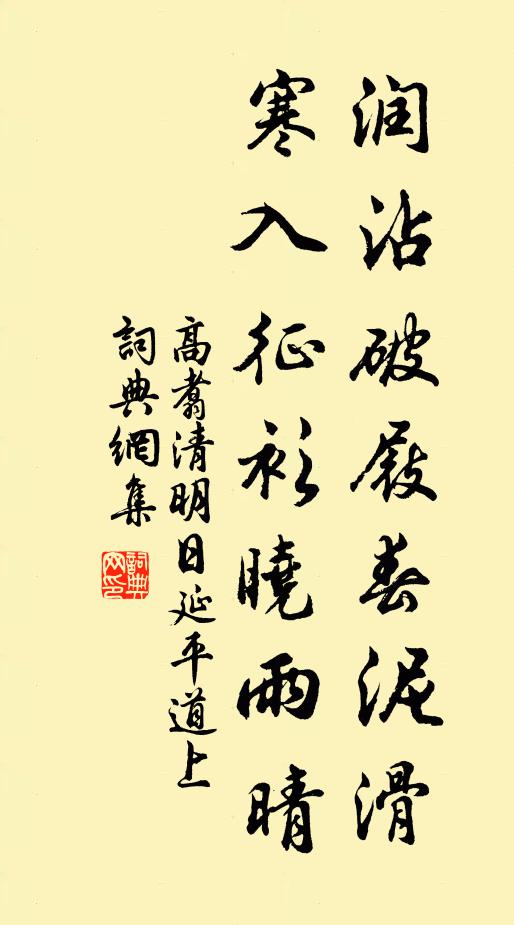 润沾破屐春泥滑
寒入征衫曉雨晴
高翥清明日延平道上
詞典網集
詞典网印